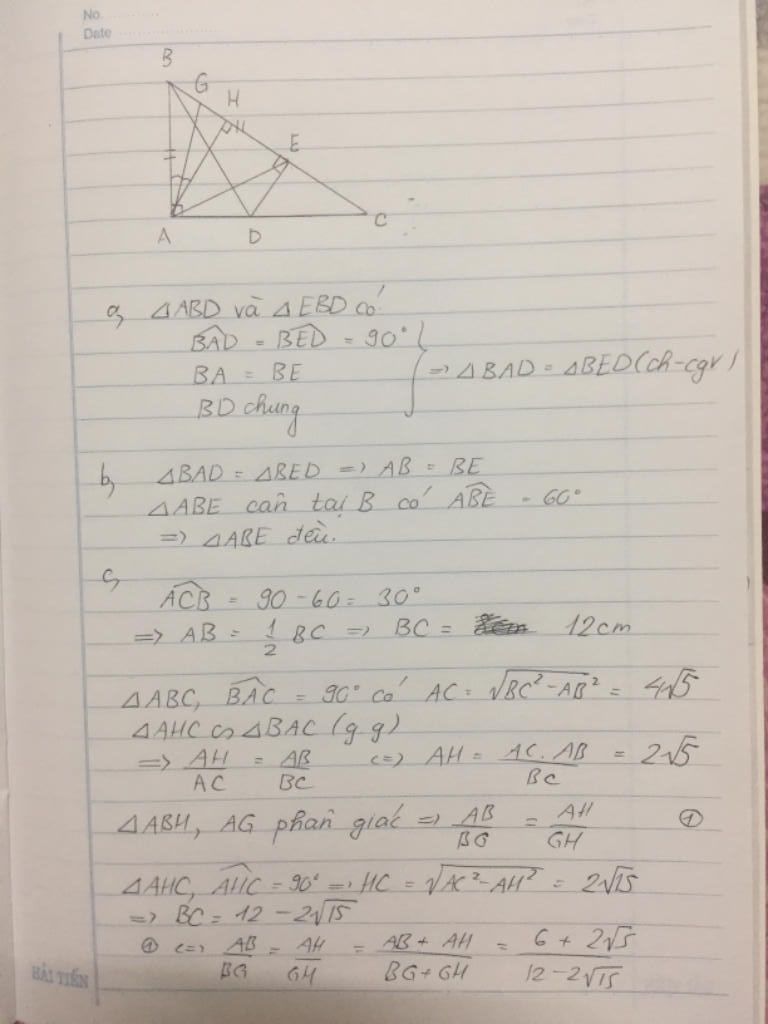 No.
Date
B
G
H
E
A
D
C
a, △ABD và △EBD có
BAD = BED = 90°
BA = BE
BD chung
=> △BAD = △BED (ch-cgv)
b, △BAD = △BED => AB = BE
△ABE cân tại B có ABE = 60°
=> △ABE đều.
c,
ACB = 90 - 60 = 30°
=> AB = 1/2 BC => BC = 12cm
△ABC, BAC = 90° có AC = √(BC² - AB²) = 4√5
△AHC ∽ △BAC (g g)
=> AH/AC = AB/BC <=> AH = AC.AB/BC = 2√5
△ABH, AG phân giác => AB/BG = AH/GH ①
△AHC, AHC = 90° => HC = √(AC² - AH²) = 2√15
=> BC = 12 - 2√15
① <=> AB/BG = AH/GH = AB + AH/BG + GH = 6 + 2√5/12 - 2√15
HẢI TIẾN